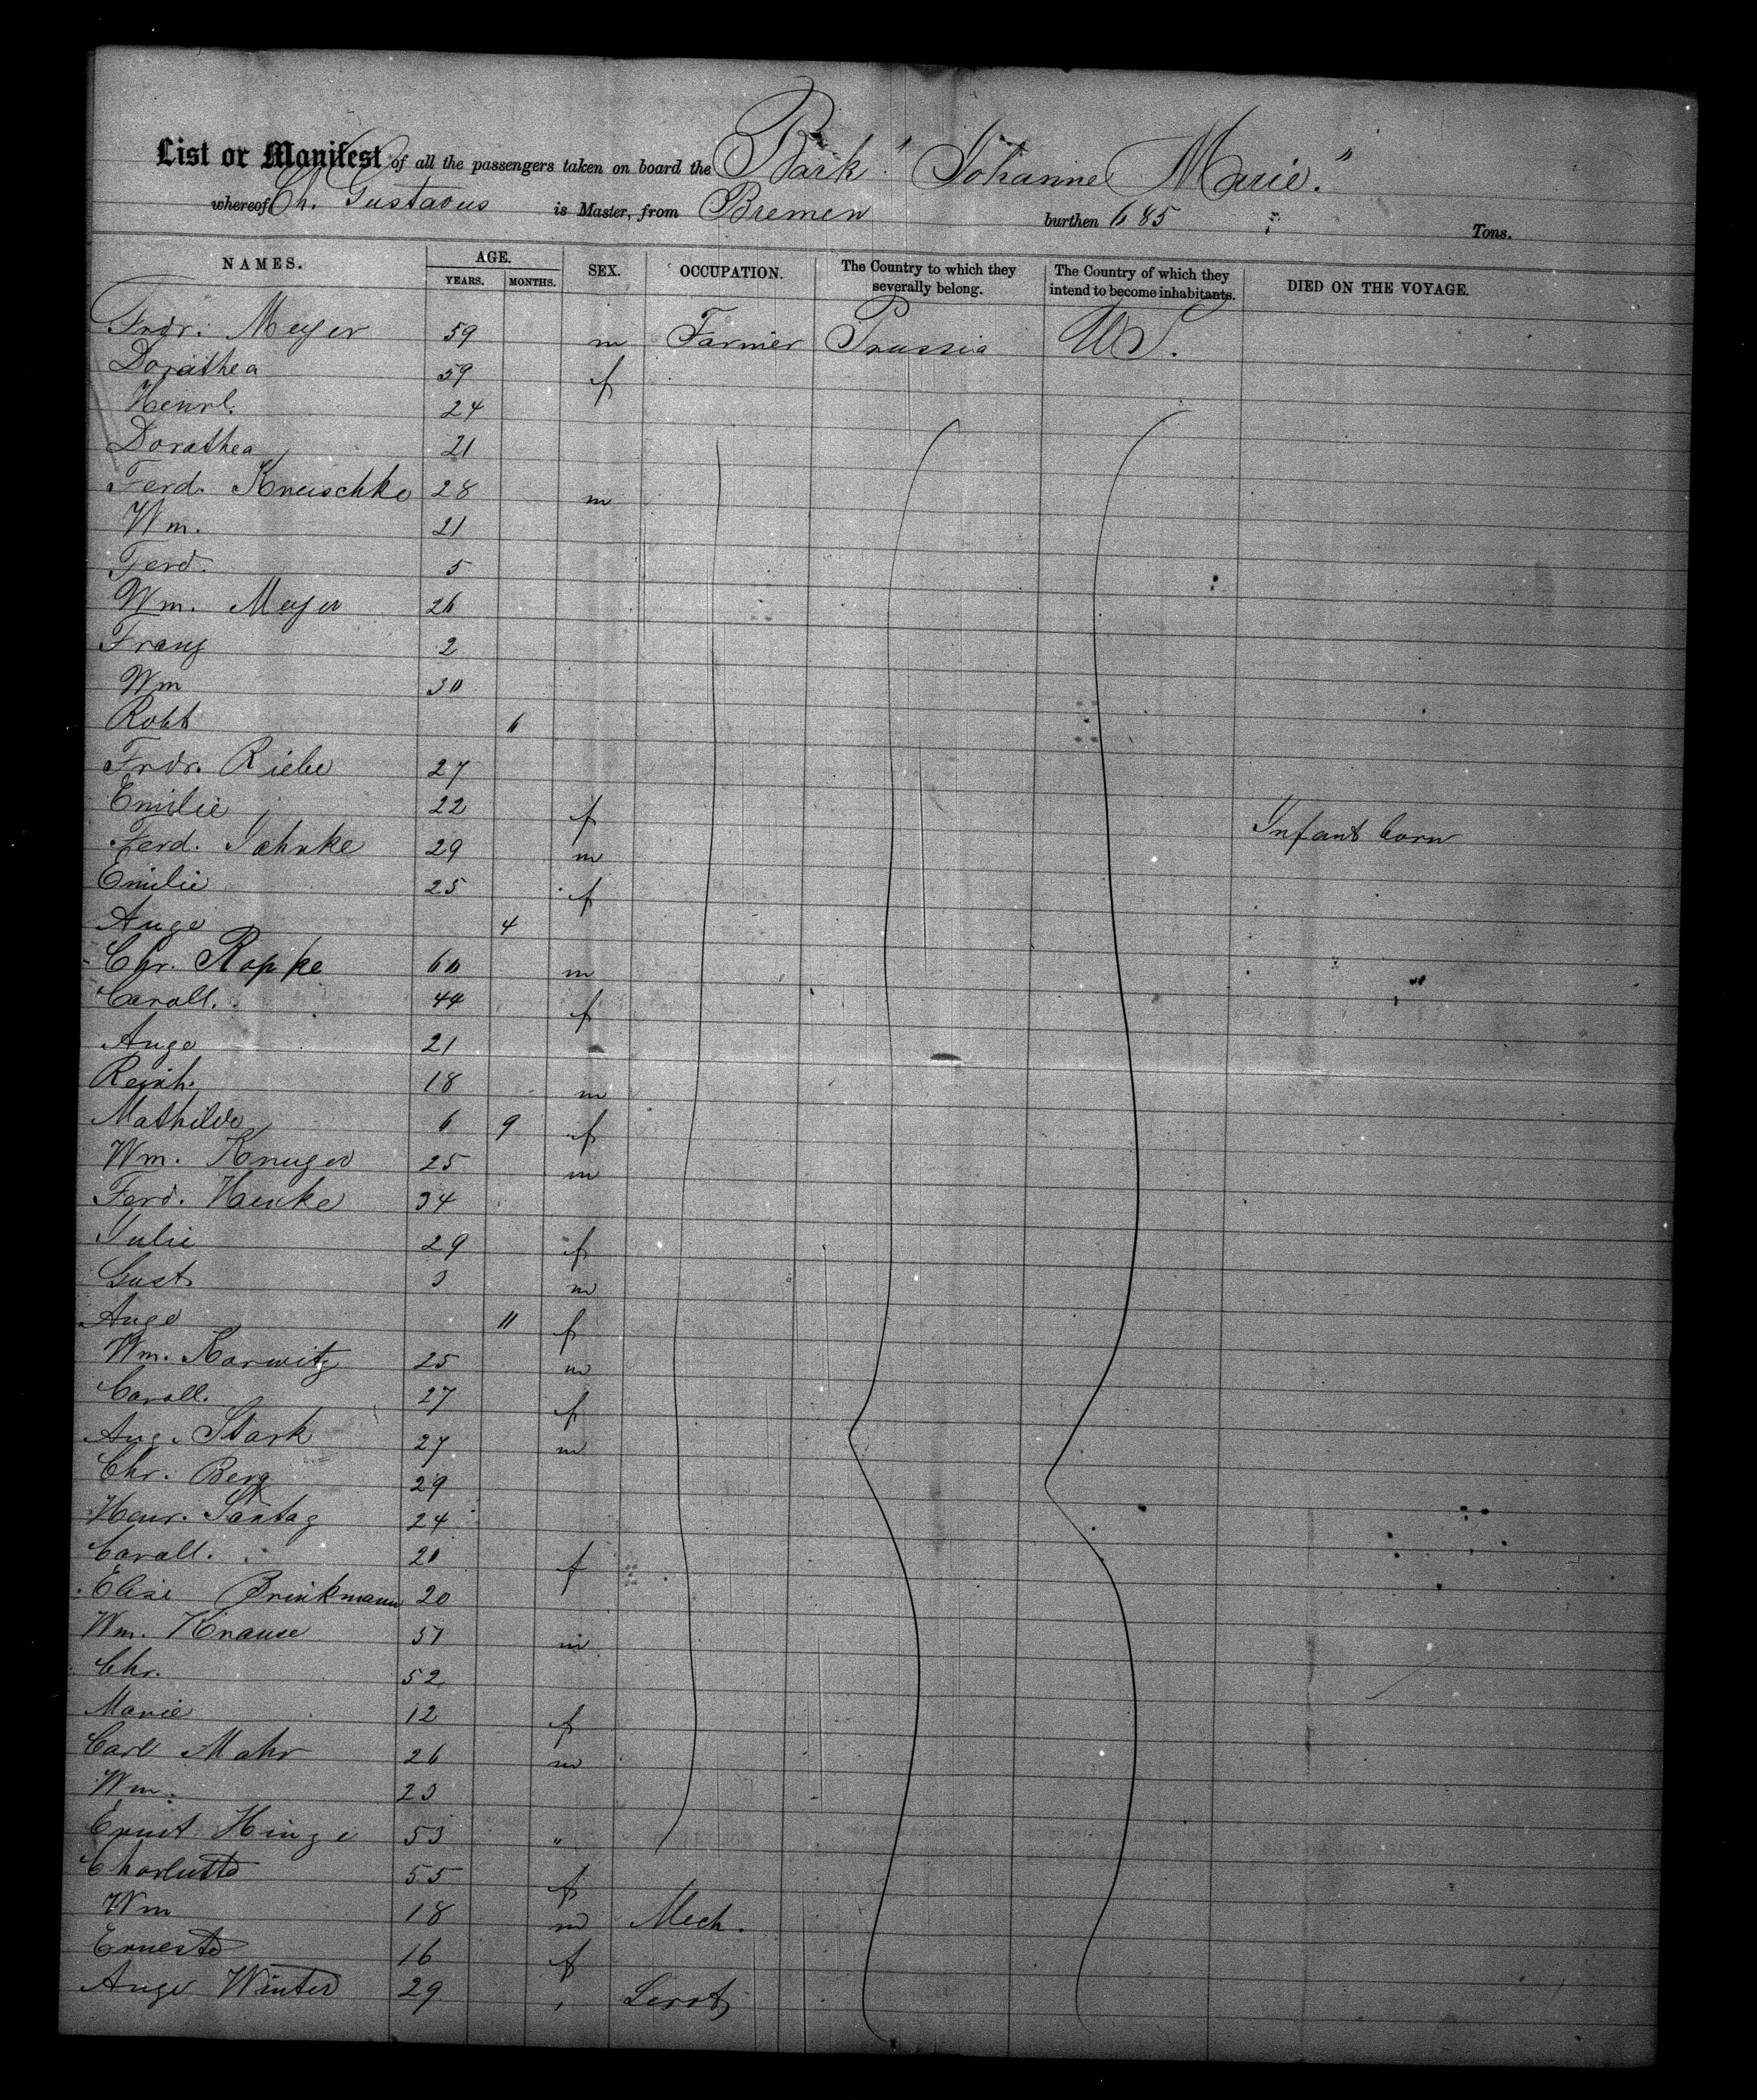 List or Manifest of all the passengers taken on board the Bark "Johanne Marie."
whereof Ch. Gustavus is Master, from Bremen burthen 685 Tons.
NAMES. AGE. YEARS. MONTHS. SEX. OCCUPATION. The Country to which they severally belong. The Country of which they intend to become inhabitants. DIED ON THE VOYAGE.
Frdr. Meyer 59 m Farmer Prussia US.
Dorathea 59 f
Henrl. 24
Dorathea 21
Ferd. Kneischke 28 m
Wm. 21
Ferd. 5
Wm. Meyer 26
Franz 2
Wm 30
Robt 6
Frdr. Riebe 27
Emilie 22 f Infant born
Ferd. Jahnke 29 m
Emilie 25 f
Auge 4
Chr. Rapke 60 m
Caroll. 44 f
Auge 21
Reinh. 18 m
Mathilde 6 9 f
Wm. Kruger 25 m
Ferd. Henke 34
Julie 29 f
Gust. 3 m
Auge 11 f
Wm. Karwitz 25 m
Caroll. 27 f
Aug. Stark 27 m
Chr. Berg 29
Henr. Santag 24
Caroll. 20 f
Elise Brinkmann 20
Wm. Krause 57 m
Chr. 52
Marie 12 f
Carl Mahr 26 m
Wm. 23
Ernst Hinze 53 "
Charlotte 55 f
Wm 18 m Mech.
Erneste 16 f
Auge Winter 29